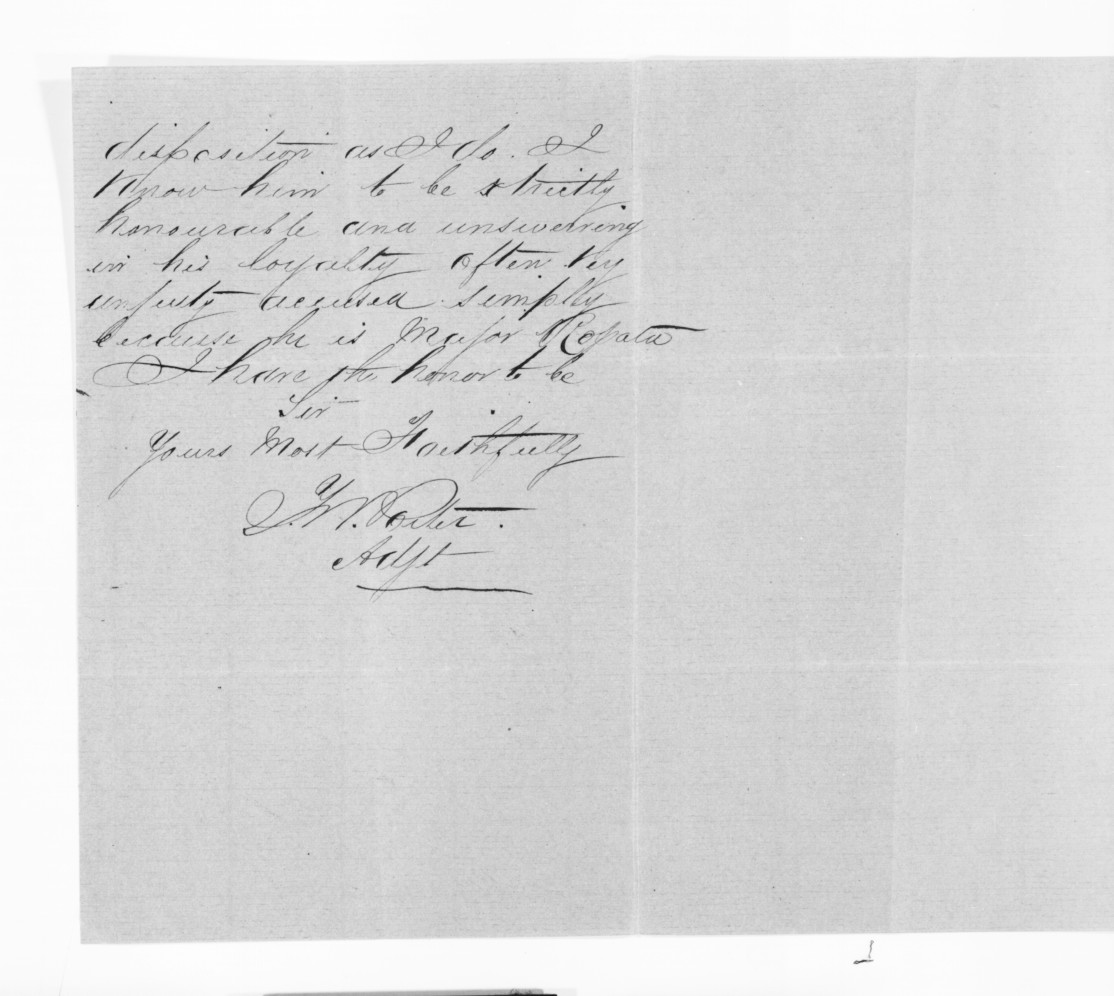 disposition as I do. I
know him to be strictly
honourable and unswerving
in his loyalty often
unjustly accused simply
because he is Major Ropata
I have the honor to be
Sir
Yours Most Faithfully
T.W. Porter.
Adjt